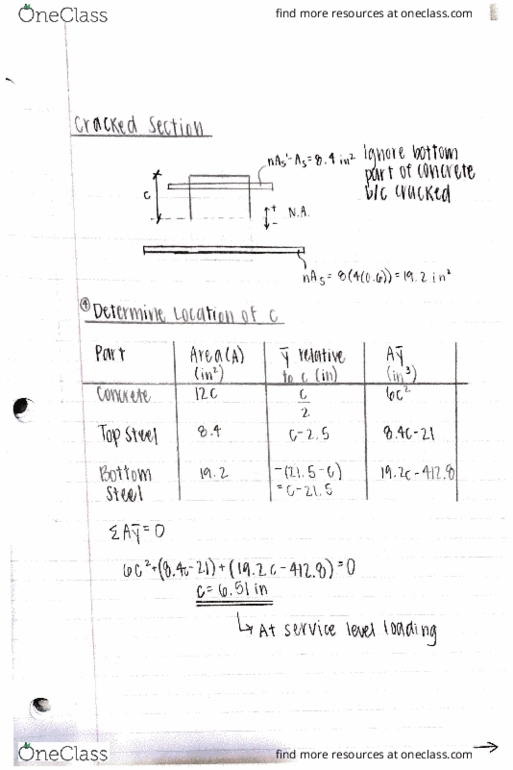 OneClass
find more resources at oneclass.com
Cracked Section
nAs'-As=8.4 in² Ignore bottom
part of concrete
b/c cracked
c
+
-
N.A.
nAs=8(4(0.6))=19.2 in²
④ Determine Location of c
Part Area(A) (in²) ȳ relative to c (in) Aȳ (in³)
Concrete 12c c/2 6c²
Top Steel 8.4 c-2.5 8.4c-21
Bottom Steel 19.2 -(21.5-c) =c-21.5 19.2c-412.8
ΣAȳ=0
6c²+(8.4c-21)+(19.2c-412.8)=0
c=6.51 in
↳ At service level loading
→
OneClass
find more resources at oneclass.com